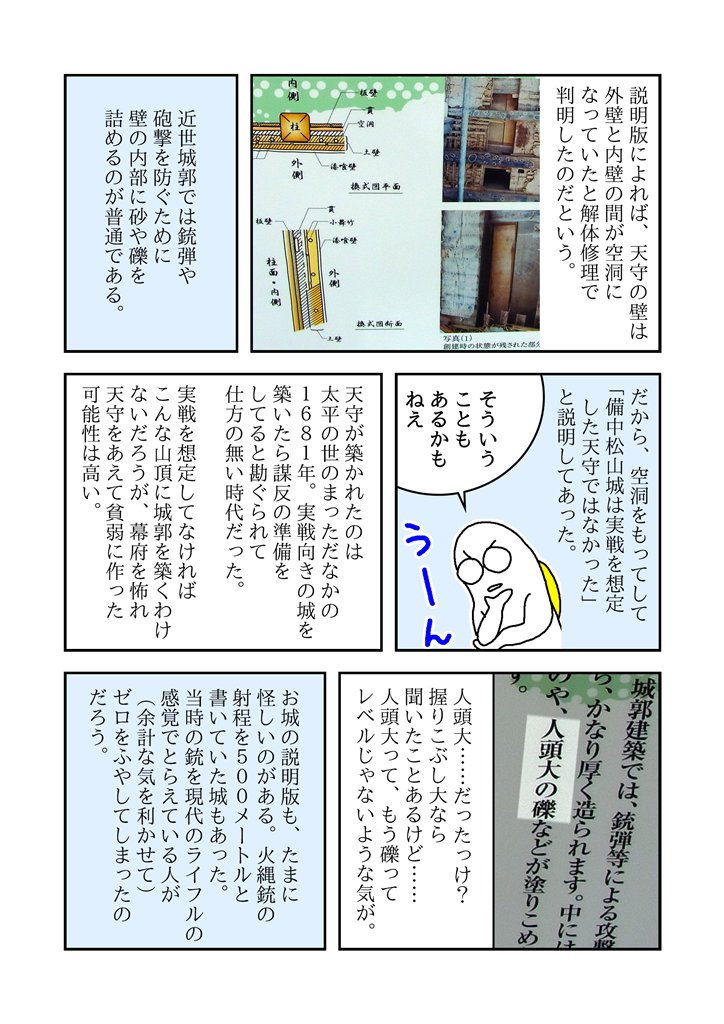 説明版によれば、天守の壁は
外壁と内壁の間が空洞に
なっていたと解体修理で
判明したのだという。
内側
板壁
貫
空洞
柱
土壁
外側
漆喰壁
換式図平面
貫
板壁
小舞竹
漆喰壁
柱面・内側
外側
換式図断面
土壁
写真(1)
創建時の状態が残された部分
近世城郭では銃弾や
砲撃を防ぐために
壁の内部に砂や礫を
詰めるのが普通である。
だから、空洞をもってして
「備中松山城は実戦を想定
した天守ではなかった」
と説明してあった。
そういう
ことも
あるかも
ねえ
うーん
天守が築かれたのは
太平の世のまっただなかの
1681年。実戦向きの城を
築いたら謀反の準備を
してると勘ぐられて
仕方の無い時代だった。
実戦を想定してなければ
こんな山頂に城郭を築くわけ
ないだろうが、幕府を怖れ
天守をあえて貧弱に作った
可能性は高い。
城郭建築では、銃弾等による攻撃
ら、かなり厚く造られます。中には
のや、人頭大の礫などが塗りこめ
す。
人頭大……だったっけ?
握りこぶし大なら
聞いたことあるけど……
人頭大って、もう礫って
レベルじゃないような気が。
お城の説明版も、たまに
怪しいのがある。火縄銃の
射程を500メートルと
書いていた城もあった。
当時の銃を現代のライフルの
感覚でとらえている人が
(余計な気を利かせて)
ゼロをふやしてしまったの
だろう。